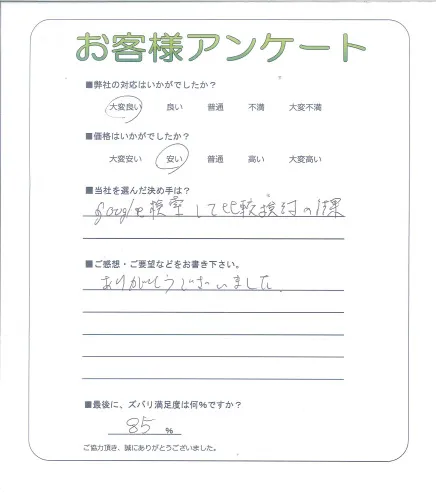 お客様アンケート
■弊社の対応はいかがでしたか?
大変良い 良い 普通 不満 大変不満
■価格はいかがでしたか?
大変安い 安い 普通 高い 大変高い
■当社を選んだ決め手は?
google検索して比較検討の結果
■ご感想・ご要望などをお書き下さい。
ありがとうございました。
■最後に、ズバリ満足度は何%ですか?
85 %
ご協力頂き、誠にありがとうございました。